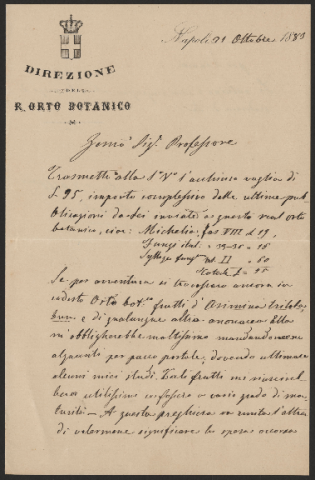 Napoli 21 Ottobre 1883
DIREZIONE
DEL
R. ORTO BOTANICO
Illmo Sig. Professore
Trasmetto alla S. V. l'accluso vaglia di
£. 95, importo complessivo delle ultime pub-
blicazioni da Lei inviate a questo real orto
botanico, cioè: Michelia, fas VIII £ 19,
Fungi ital. = 16
Sylloge fung. vol. II = 60
Totale £ = 95
Se per avventura si trovassero ancora in
codesto Orto bot.co frutti d'Asimina trilo-
ba, e di qualunque altra anonacea Ella
m'obbligherebbe moltissimo mandandomene
alquanti per pacco postale, dovendo ultimare
alcuni miei studi. Tali frutti mi riuscireb-
bero utilissimi se fossero a vario grado di ma-
turità — A questa preghiera va unita l'altra
di volermene significare la spesa occorsa